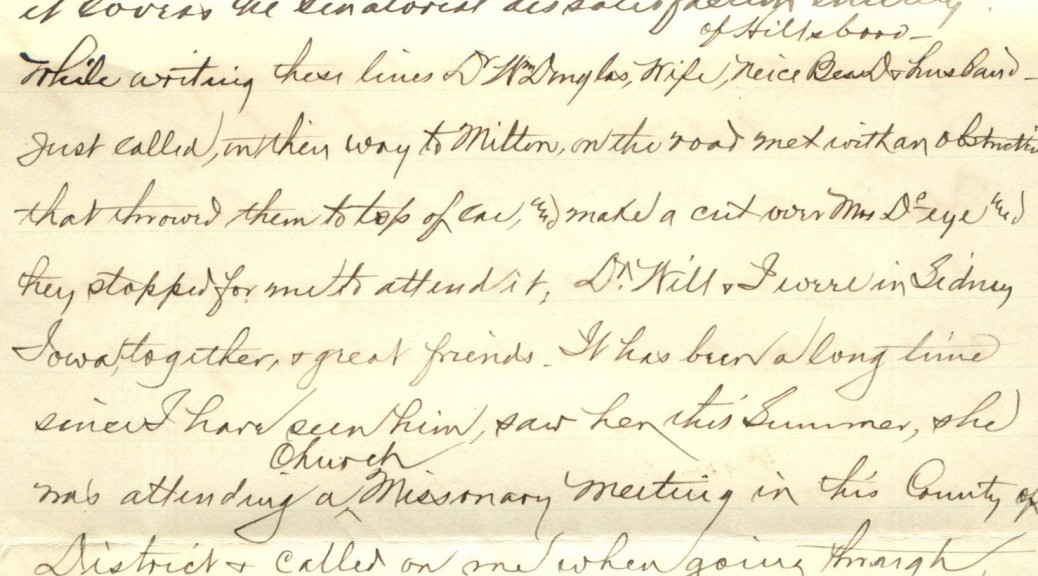 it covers the Senatorial dissatisfaction
of Hillsboro-
While writing these lines Dr Wm Douglas, Wife, Neice & husband -
Just called, on their way to Milton, on the road met with an obstructi
that throwed them to top of car, and make a cut over Mrs Ds eye and
hey stopped for me to attend it, Dr. Will & I were in Sidney
Iowa, together, & great friends - It has been a long time
since I have seen him, saw her this Summer, she
Church
was attending a ^ Missonary meeting in this County of
District & called on me when going through,